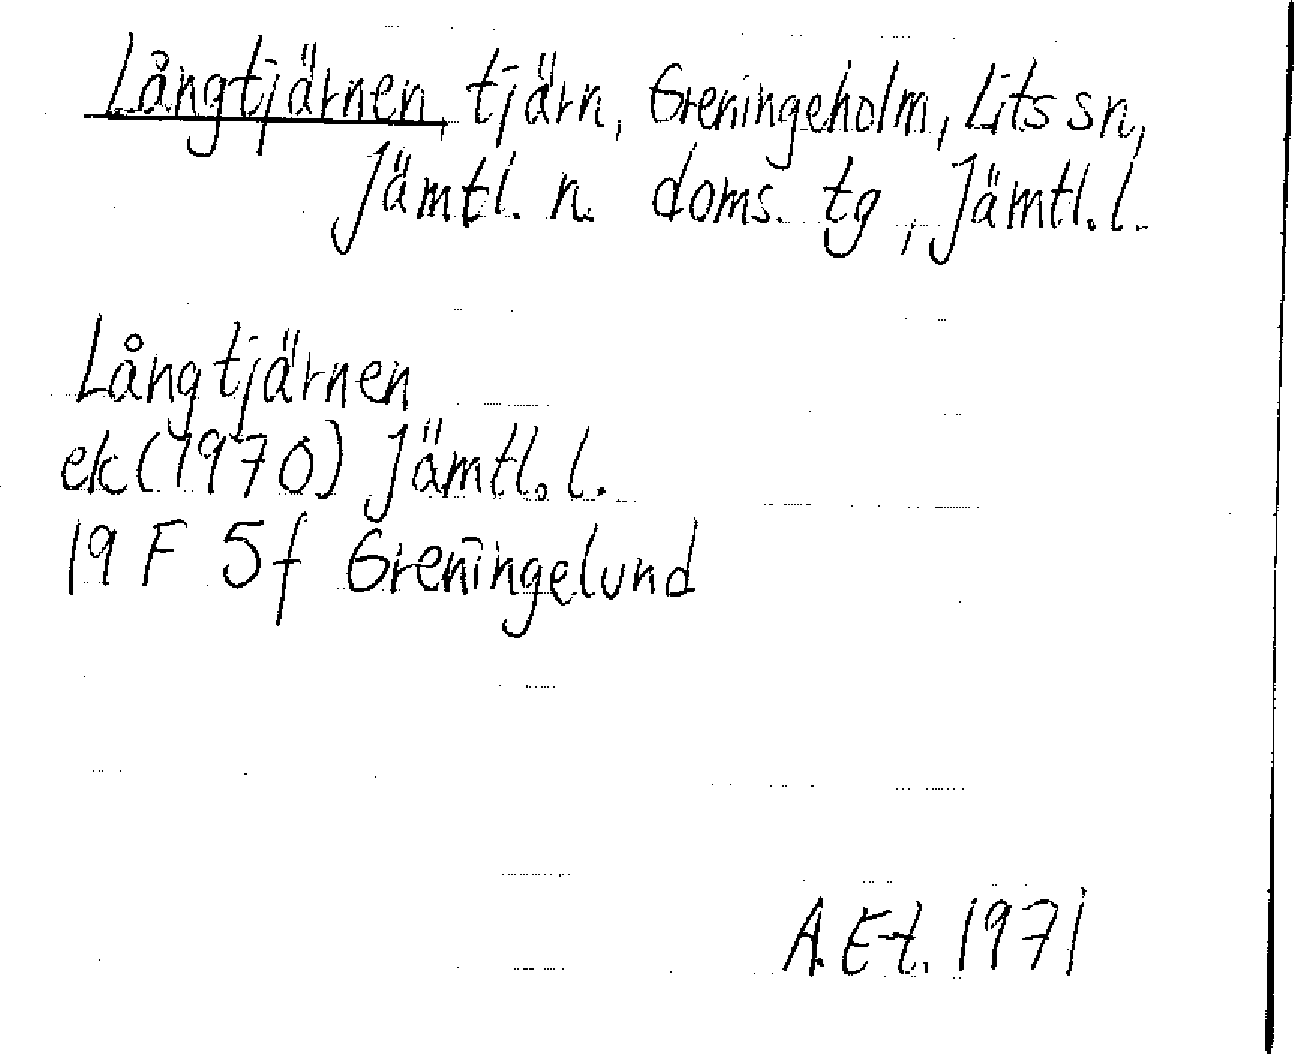 Långtjärnen, tjärn, Greningeholm, Lits sn,
Jämtl. n. doms. tg, Jämtl. l.
Långtjärnen
ek (1970) Jämtl. l.
19 F 5f Greningelund
A. E-t. 1971